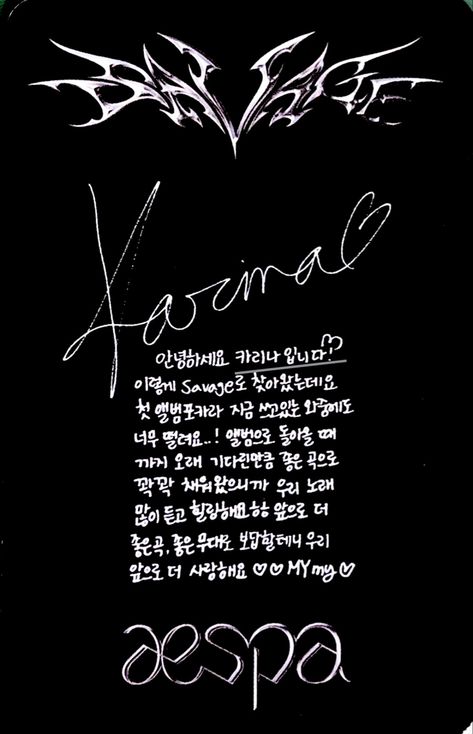 SAVAGE
Karina♡
안녕하세요 카리나 입니다!♡
이렇게 Savage로 찾아왔는데요
첫 앨범포카라 지금 쓰고있는 와중에도
너무 떨려요..! 앨범으로 돌아올 때
까지 오래 기다린만큼 좋은 곡으로
꽉꽉 채워왔으니까 우리 노래
많이 듣고 힐링해요ㅎㅎ 앞으로 더
좋은곡, 좋은 무대로 보답할테니 우리
앞으로 더 사랑해요 ♡♡ MY my ♡
aespa